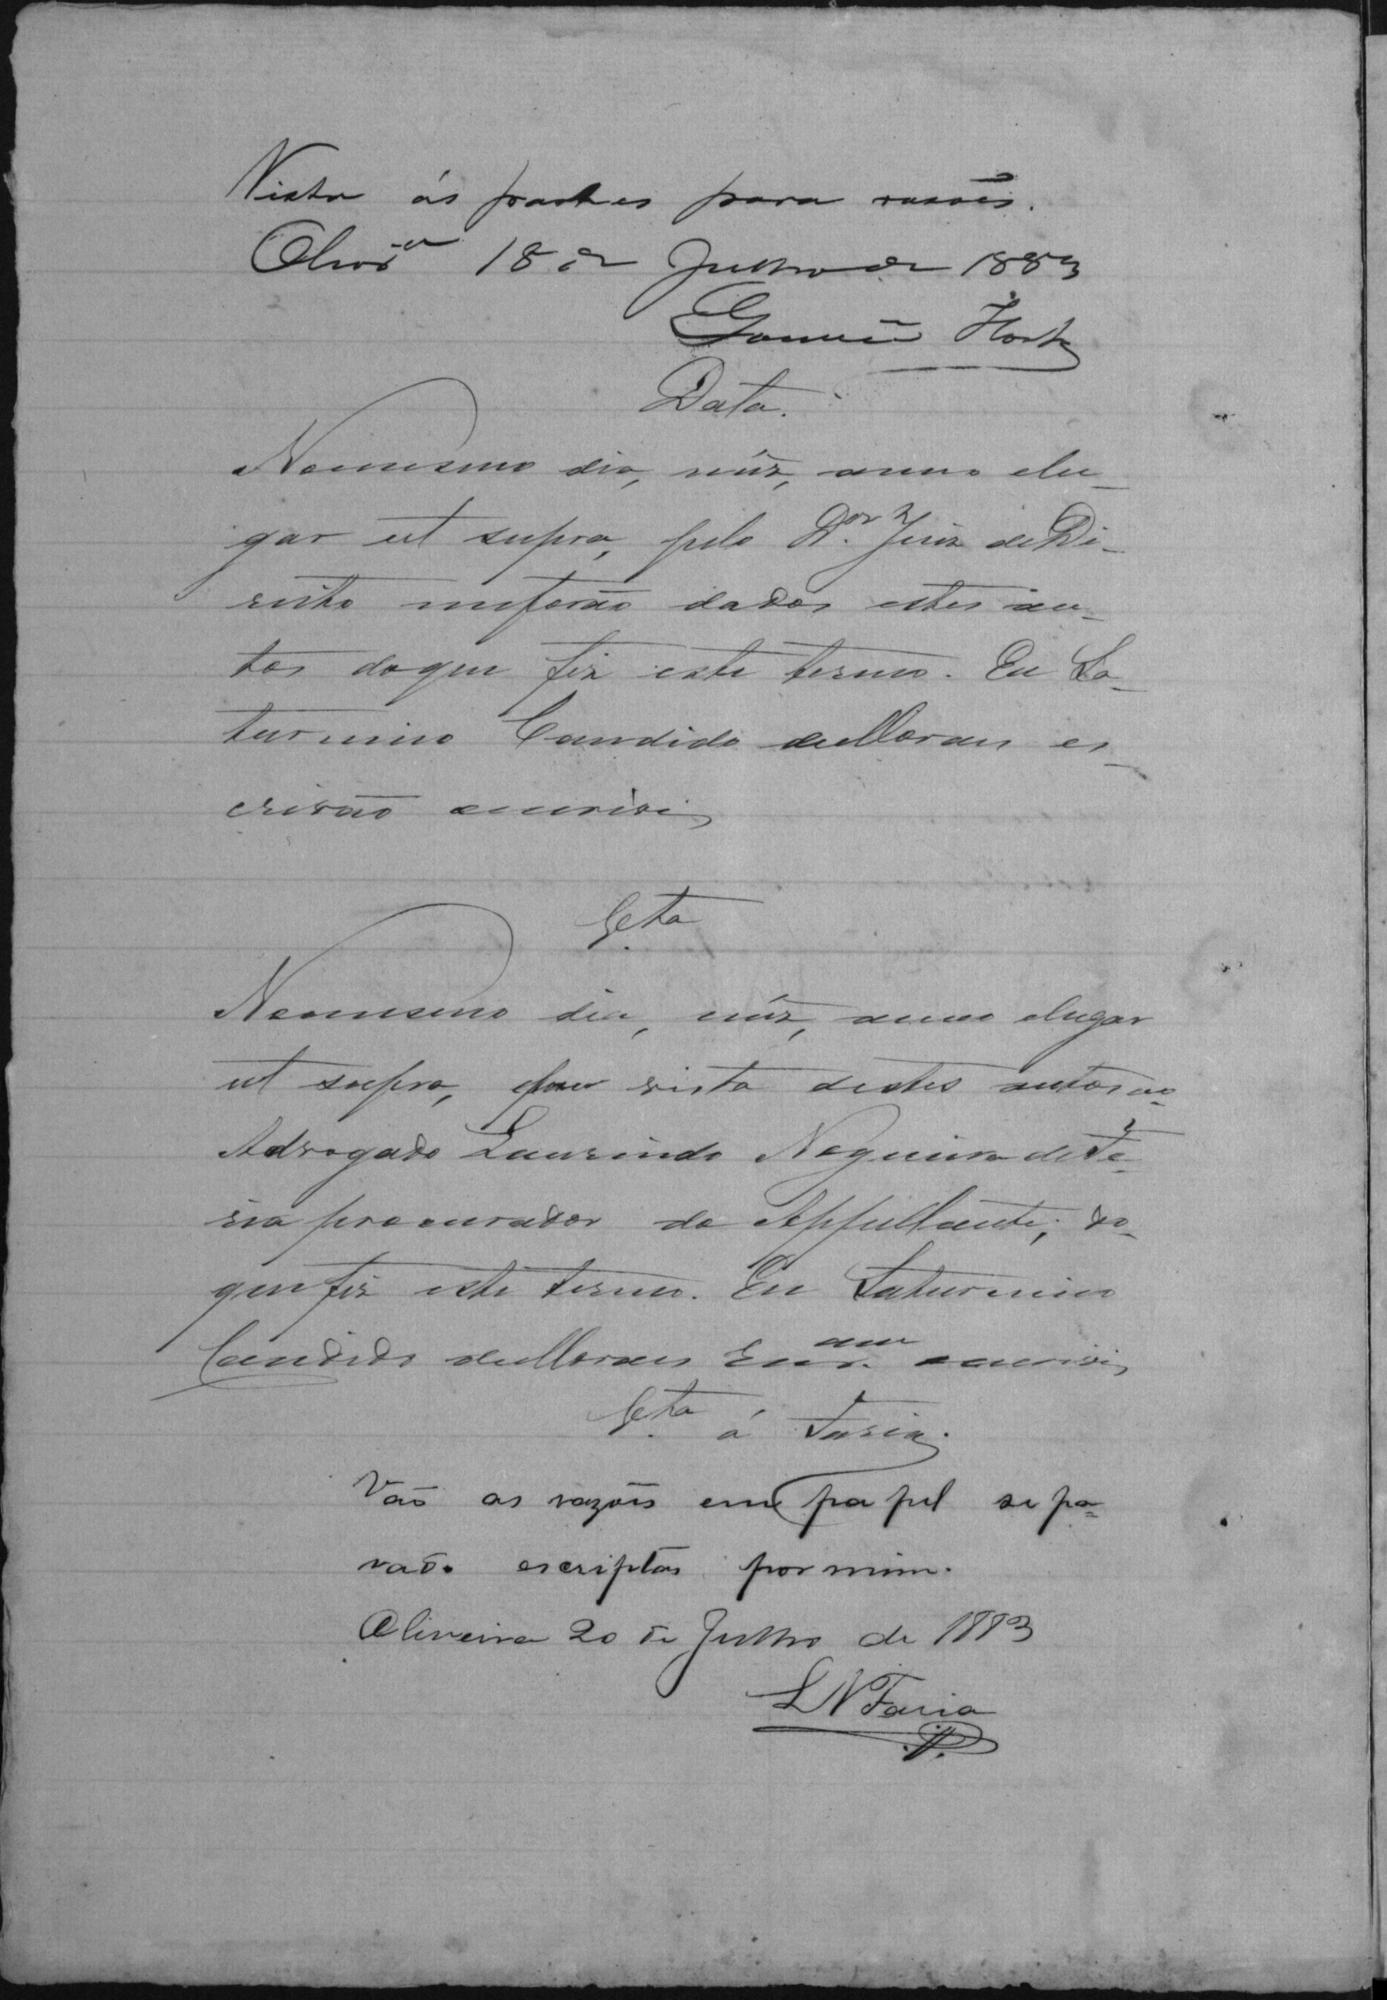 Vista ás partes para rasões.
Olivrª 18 de Julho de 1883
Gomes Horta
Data.
Nomesmo dia, mêz, anno elu-
gar ut supra, pelo Dor. Juiz deDi-
reito meforão dados estes au-
tos doque fiz este termo. Eu Sa-
turnino Candido deMoraes es-
crivão escrevi
Vta
Nomesmo dia, mêz, anno elugar
ut supra, faço vista destes autos ao
Advogado Laurindo Nogueira deFa-
ria procurador do Appellante; do
quefiz este termo. Eu Saturnino
Candido deMoraes escrevi
Vta á Faria.
Vão as razões em papel sepa-
rado escriptas por mim.
Oliveira 20 de Julho de 1883
L N Faria